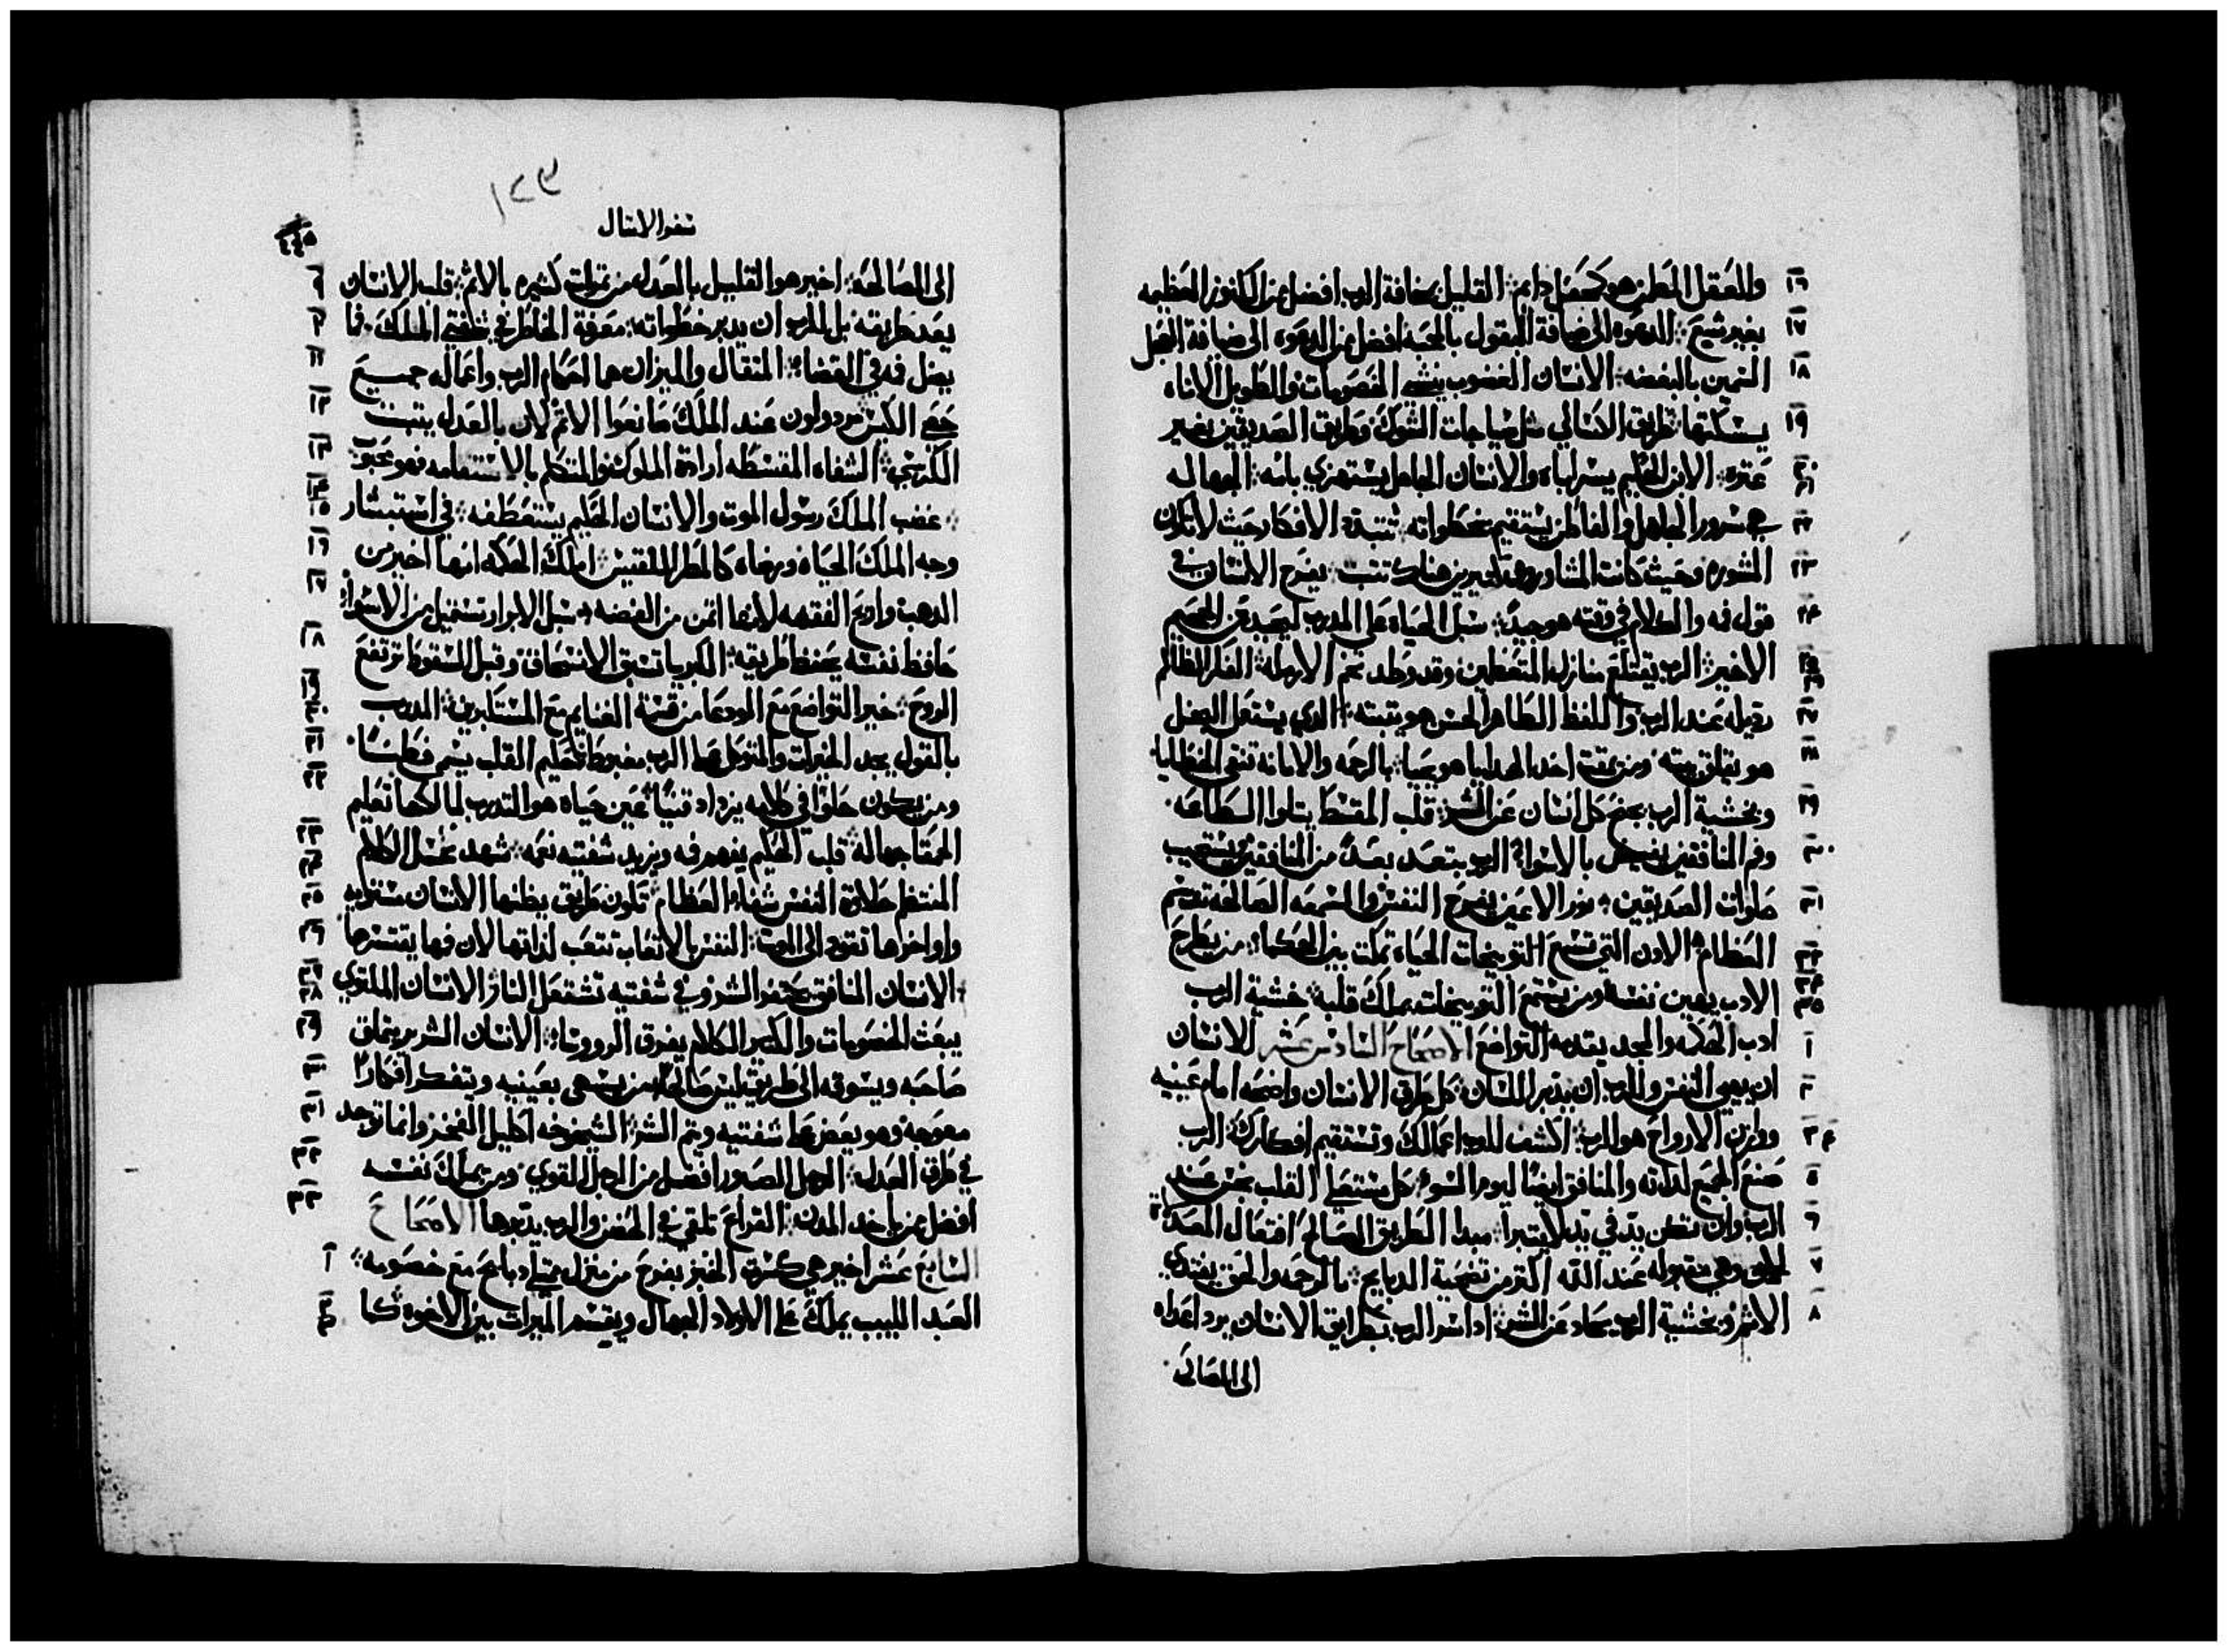 ١٦ والعقل المطمن هو كمحفل دايم القليل بمخافة الرب افضل من الكنوز العظيمه
١٧ بغير شبع الدعوه الى ضيافة البقول بالمحبه افضل من الدعوه الى ضيافة العجل
١٨ السمين بالبغضه الانسان الغضوب ينشي الخصومات والطويل الاناه
١٩ يسكتها طريق الكسالي مثل سياجات الشوك وطريق الصديقين بغير
٢٠ ٢١ عتره الابن الحكيم يسر اباه والانسان الجاهل يستهزي بامه الجهاله
٢٢ هي سرور الجاهل والفاطن يستقيم بخطواته تتبدد الافكار حيث لا تكون
٢٣ المشوره وحيث كانت المشاورون كثيرين هناك تتبت يفرح الانسان في
٢٤ قول فمه والكلام في وقته هو جيد سبل الحياه على المدرب ليحيد عن الجحيم
٢٥ ٢٦ الاخير الرب يقتلع منازل المتعظمين وقد وطد تخم الارمله الفكر الظالم
٢٧ رذيله عند الرب واللفظ الطاهر الحسن هو يتبته الذي يستعمل البخل
٢٨ هو يقلق بيته ومن يمقت اخد الهدايا هو يحيا بالرحمه والامانه تنقى الخطايا
٢٩ وبخشية الرب يجنح كل انسان عن الشر قلب المقسط يتلوا الطاعه
٣٠ وفم المنافقين يفيض بالاسوا الرب يتبعد بعدا من المنافقين ويستجيب
٣١ صلوات الصديقين نور الاعين يفرح النفس والسمعه الصالحه تدسم
٣٢ العظام الادن التي تسمع التوبيخات الحياه تمكت بين الحكما من يطرح
٣٣ الادب يهين نفسه ومن يستمع التوبيخات يملك قلبه خشية الرب
١ ادب الحكمه والمجد يتقدمه التواضع الاصحاح السادس عشر الانسان
٢ ان يهيي النفس وللرب ان يدبر اللسان كل طرق الانسان واضحه امام عينيه
٣ ووازن الارواح هو الرب اكشف للرب اعمالك وتستقيم افكارك الرب
٥ صنع الجميع لداته والمنافق ايضا ليوم السوء كل مستعلي القلب نجس عند
٦ الرب وان تكن يد في يد لا يتبرا مبدا الطريق الصالح افتعال الصدقات
٧ وهي مقبوله عند الله اكتر من تضحية الدبايح بالرحمه والحق يفتدي
٨ الاتم وبخشية الرب يحاد عن الشر ادا سر الرب بطرايق الانسان يرد اعداه
الى المصالحه
سفر الامتال
الى المصالحه اخير هو القليل بالعدل من غلات كتيره بالاتم قلب الانسان ٩
يعد طريقه بل للرب ان يدبر خطواته معرفة الخاطر في شفتي الملك فما ١٠
يضل فمه في القضاء المتقال والميزان هما احكام الرب واعماله جميع ١١
حصي الكيس مردولون عند الملك صانعوا الاتم لان بالعدل يتبت ١٢
الكرسي الشفاه المقسطه ارادة الملوك والمتكلم بالاستقامه فهو محبوب ١٣
غضب الملك رسول الموت والانسان الحكيم يستعطفه في استبشار ١٤ ١٥
وجه الملك الحياه ورضاه كالمطر اللقيس املك الحكمه انها اخير من ١٦
الدهب واربح الفقهه لانها اتمن من الفضه سبل الابرار تستميل من الاسوا ١٧
حافظ نفسه يحفظ طريقه الكبريا تسبق الانسحاق وقبل السقوط ترتفع ١٨
الروح خير التواضع مع الودعا من قسمة الغنايم مع المستكبرين المدرب ١٩ ٢٠
بالقول يجد الخيرات والمتوكل على الرب مغبوطا حكيم القلب يسمى فطنا ٢١
ومن يكون حلوا في كلامه يزداد قنيا عين حياه هو التدرب لمالكها تعليم ٢٢
الحمقا جهاله قلب الحكيم يفهم فمه ويزيد شفتيه نعمه شهد عسل الكلام ٢٣ ٢٤
المنتظم حلاوة النفس شفاء العظام تكون طريق يظنها الانسان مستويه ٢٥
واواخرها تقود الى الموت النفس بالاتعاب تتعب لداتها لان فمها يقتسرها ٢٦
الانسان المنافق يحتفر الشر وفي شفتيه تشتعل النار الانسان الملتوي ٢٧ ٢٨
يبعت الخصومات والكتير الكلام يفرق الرووسا الانسان الشرير يتملق ٢٩
صاحبه ويسوقه الى طريق ليس صالحا من يسهى بعينيه ويتفكر افكارا ٣٠
معوجه وهو يعض على شفتيه ويتم الشر الشيخوخه اكليل الفخر وانما توجد ٣١
في طرق العدل الرجل الصبور افضل من الرجل القوي ومن يملك نفسه ٣٢
افضل ممن ياخد المدن القراع تلقى في الحضن والرب يدبرها الاصحاح ٣٣
السابع عشر اخير هي كسرة الخبز بفرح من منزل ممتلي دبايح مع خصومه ١
العبد اللبيب يملك على الاولاد الجهال ويقسم الميرات بين الاخوه كما ٢ ٣